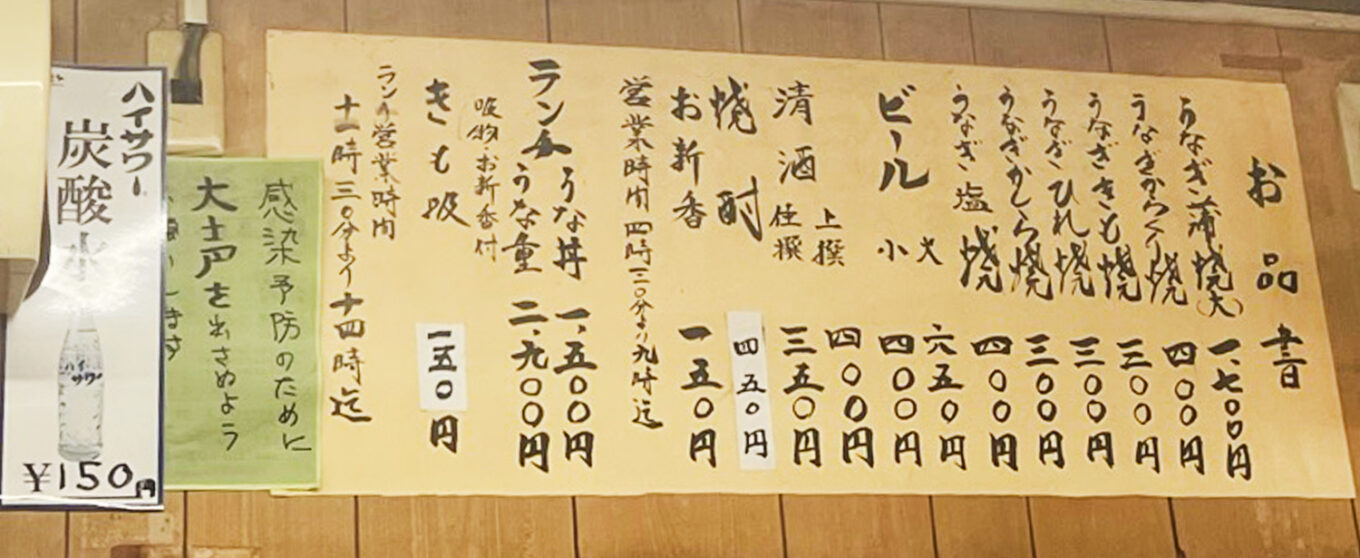 お品書
うなぎ蒲焼(大) 一、七〇〇円
うなぎからくり焼 四〇〇円
うなぎきも焼 三〇〇円
うなぎひれ焼 三〇〇円
うなぎかしら焼 三〇〇円
うなぎ塩焼 四〇〇円
ビール 大 六五〇円
小 四〇〇円
清酒 上撰 四〇〇円
佳撰 三五〇円
焼酎 四五〇円
お新香 一五〇円
営業時間 四時三〇分より九時迄
ランチ うな丼 一、五〇〇円
うな重 二、九〇〇円
吸物・お新香付
きも吸 一五〇円
ランチ営業時間
十一時三〇分より十四時迄
感染予防のために
大声を出さぬよう
お願いします
ハイサワー
炭酸水
ハイサワー
¥150円